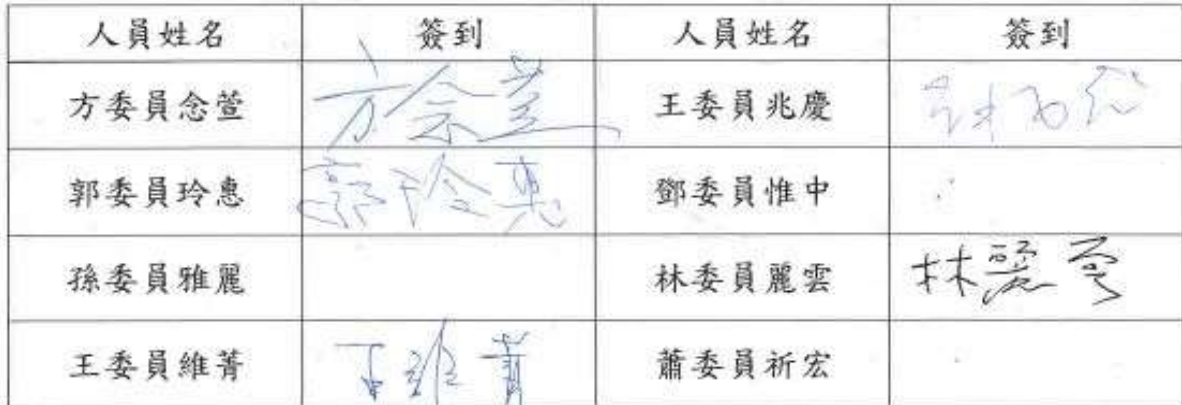 人員姓名 簽到 人員姓名 簽到
方委員念萱 方念萱 王委員兆慶
郭委員玲惠 郭玲惠 鄧委員惟中
孫委員雅麗 林委員麗雲 林麗雲
王委員維菁 王維菁 蕭委員祈宏